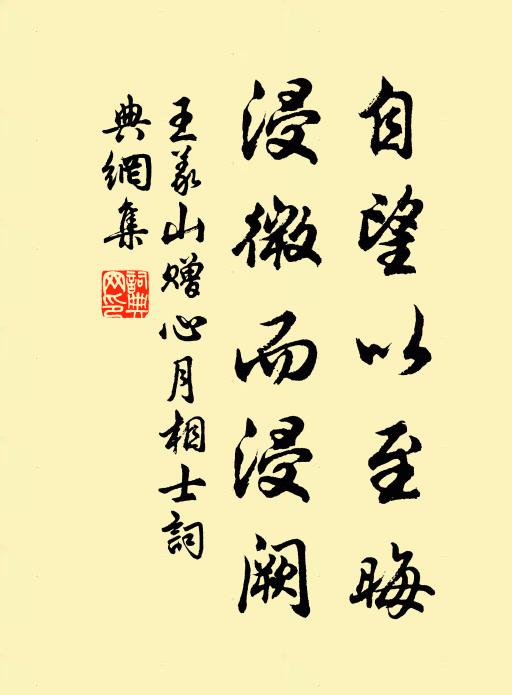 自望以至晦
浸微而浸阙
王義山赠心月相士詞
典網集
詞典網印